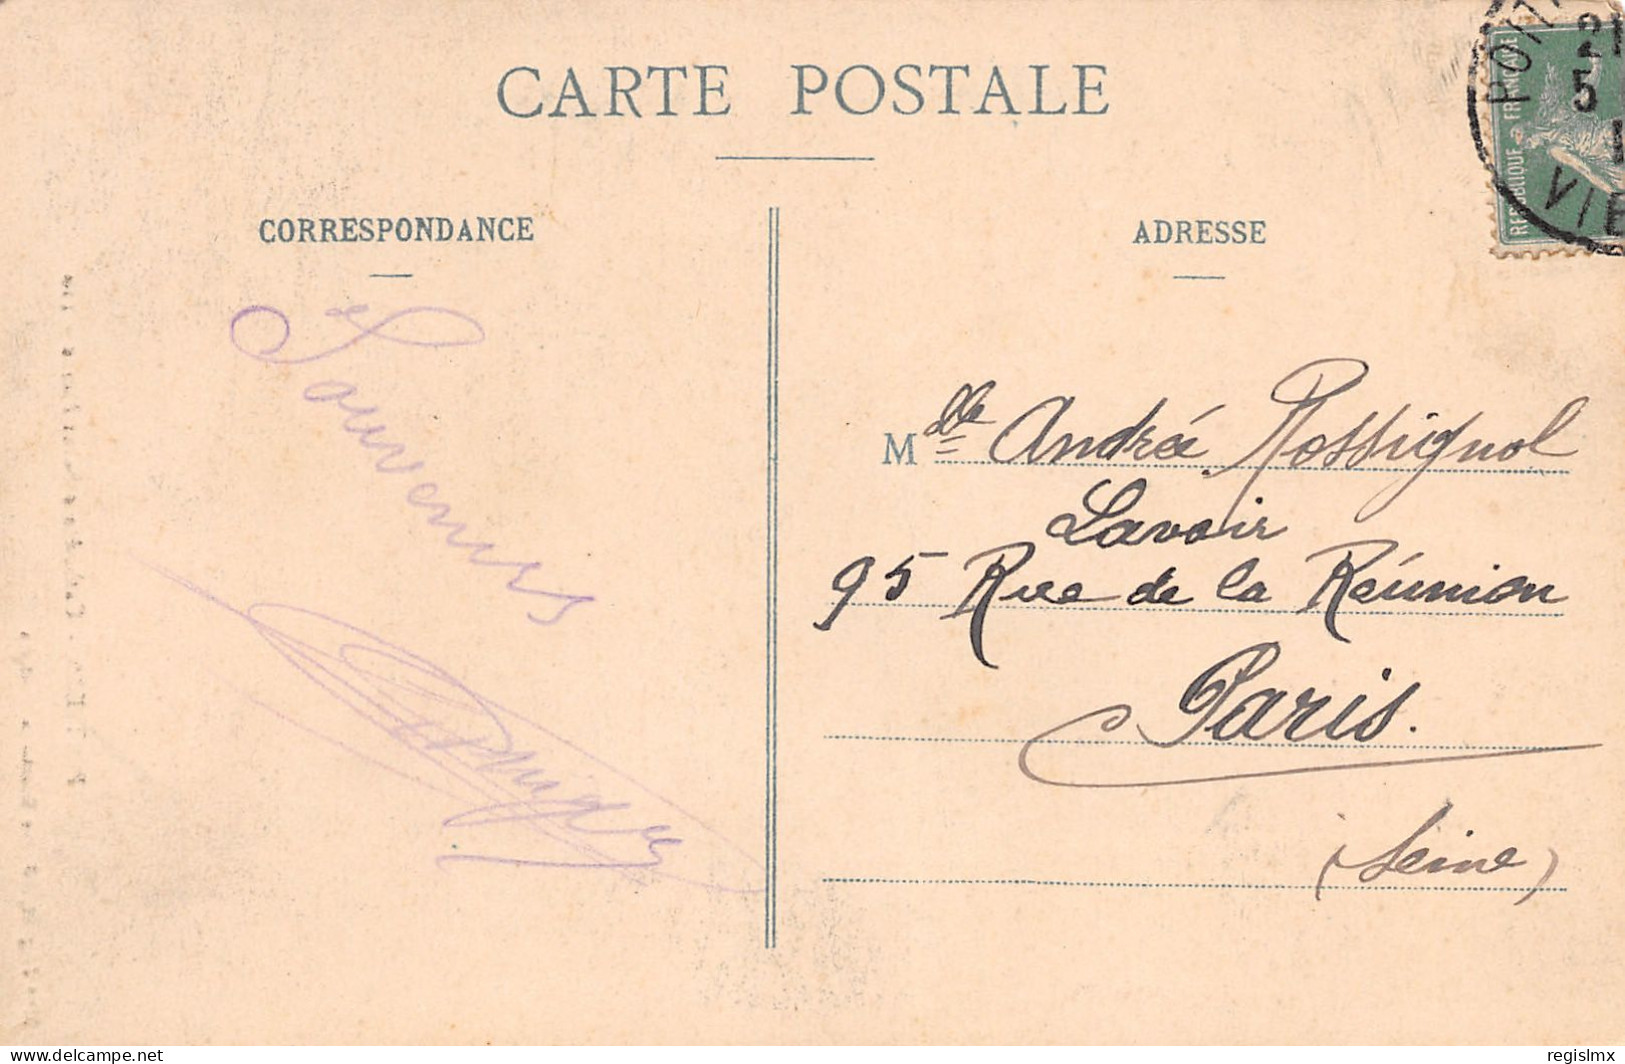 CARTE POSTALE
CORRESPONDANCE
Souvenirs
ADRESSE
Mlle Andrée Rossignol
Lavoir
95 Rue de la Réunion
Paris.
(Seine)
REPUBLIQUE FRANÇAISE
POIT
21
5
1
VIE
delcampe.net
regislmx